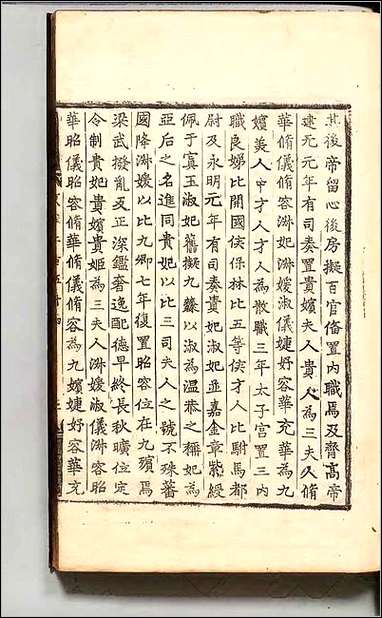 其後帝留心後房擬百官俻置內職焉及齊髙帝
建元元年有司奏置貴嬪夫人貴人為三夫人脩
華脩儀脩容淑妃淑媛淑儀婕妤容華充華為九
嬪美人中才人才人為散職三年太子宮置三內
職良娣比開國侯保林比五等侯才人比駙馬都
尉及永明元年有司奏貴妃淑妃並加金章紫綬
佩于窴玉淑妃舊擬九𣗥以淑為温恭之稱妃為
亞后之名進同貴妃以比三司夫人之號不殊蕃
國降淑媛以比九卿七年復置昭容位在九嬪焉
梁武撥亂反正深鑑奢逸配德早終長秋曠位定
令制貴妃貴嬪貴姬為三夫人淑媛淑儀淑容昭
華昭儀昭容脩華脩儀脩容為九嬪婕妤容華充